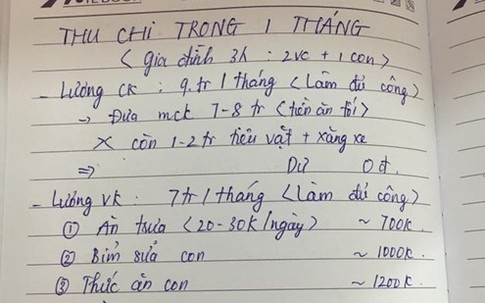 THU CHI TRONG 1 THÁNG
< Gia đình 3h : 2vc + 1 con >
- Lương CK : 9.tr 1 tháng < Làm đủ công >
→ Đưa mck 7-8 tr < tiền ăn tối >
X còn 1-2 tr tiêu vặt + xăng xe
⇒ Dư 0 đ.
- Lương VK. 7tr 1 tháng < Làm đủ công >
① Ăn trưa < 20-30k/ngày > ~ 700k.
② Bỉm sữa con ~ 1000k.
③ Thức ăn con ~ 1200k.